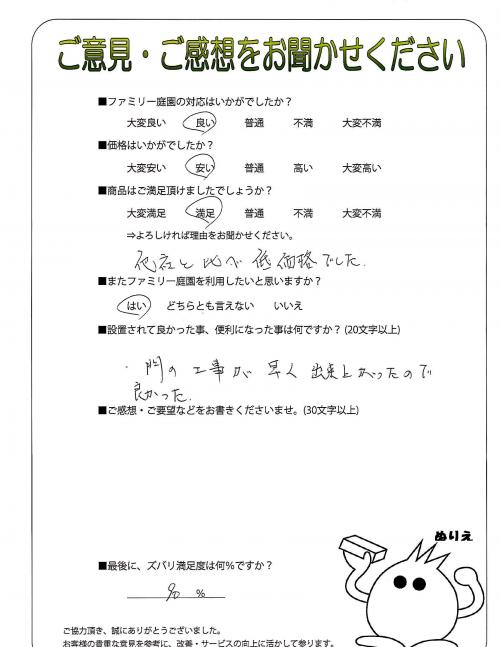 ご意見・ご感想をお聞かせください
■ファミリー庭園の対応はいかがでしたか？
大変良い 良い 普通 不満 大変不満
■価格はいかがでしたか？
大変安い 安い 普通 高い 大変高い
■商品はご満足頂けましたでしょうか？
大変満足 満足 普通 不満 大変不満
⇒よろしければ理由をお聞かせください。
他社と比べ低価格でした.
■またファミリー庭園を利用したいと思いますか？
はい どちらとも言えない いいえ
■設置されて良かった事、便利になった事は何ですか？(20文字以上)
・門の工事が早く出来上がったので
良かった.
■ご感想・ご要望などをお書きくださいませ。(30文字以上)
ぬりえ
■最後に、ズバリ満足度は何％ですか？
90 %
ご協力頂き、誠にありがとうございました。
お客様の貴重な意見を参考に、改善・サービスの向上に活かして参ります。